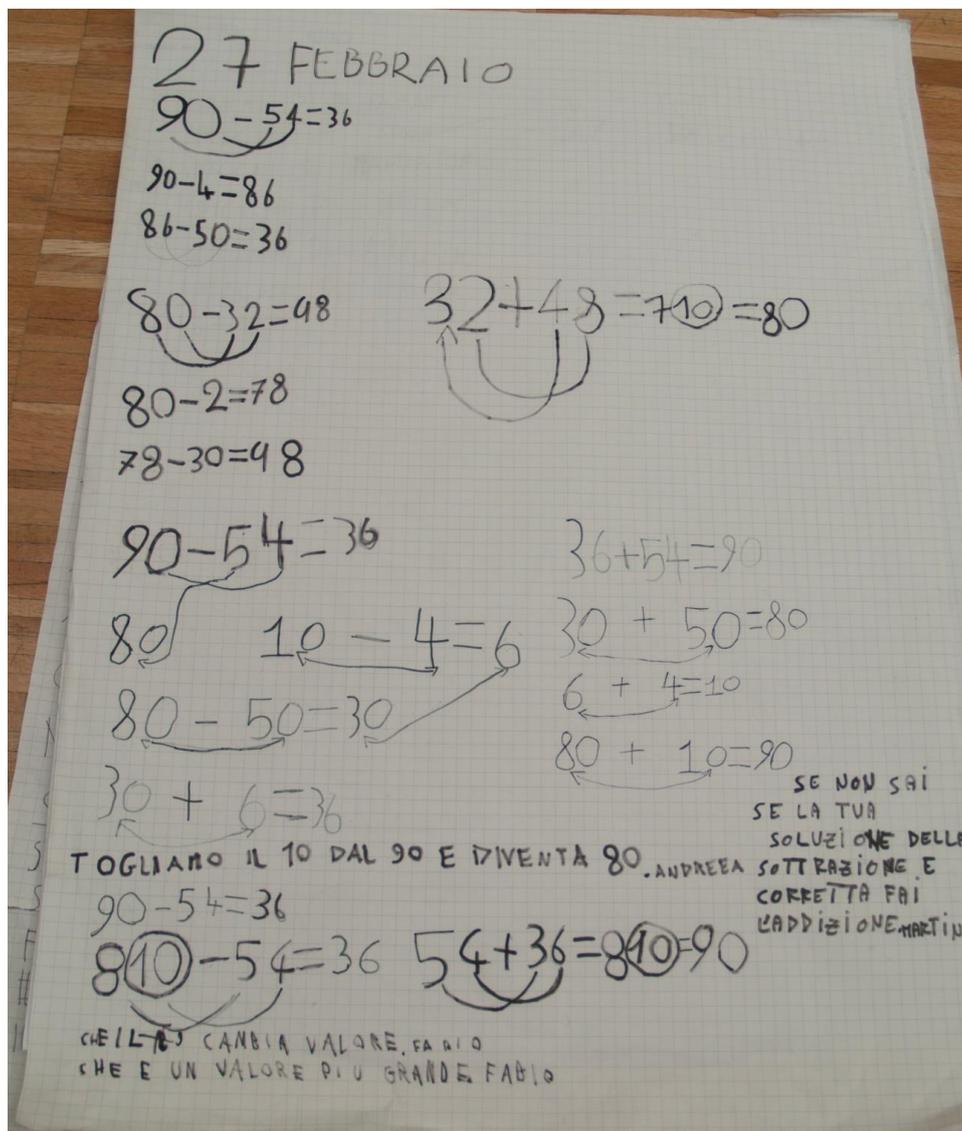 27 FEBBRAIO
90-54=36
90-4=86
86-50=36
80-32=48
32+48=710=80
80-2=78
78-30=48
90-54=36
80 10-4=6
80-50=30
30+6=36
36+54=90
30+50=80
6+4=10
80+10=90
SE NON SAI
SE LA TUA
SOLUZIONE DELLE
SOTTRAZIONE E
CORRETTA FAI
L'ADDIZIONE. MARTIN
TOGLIAMO IL 10 DAL 90 E DIVENTA 80. ANDREEA
90-54=36
810-54=36 54+36=810=90
CHE IL CAMBIA VALORE. FABIO
CHE E UN VALORE PIU GRANDE. FABIO